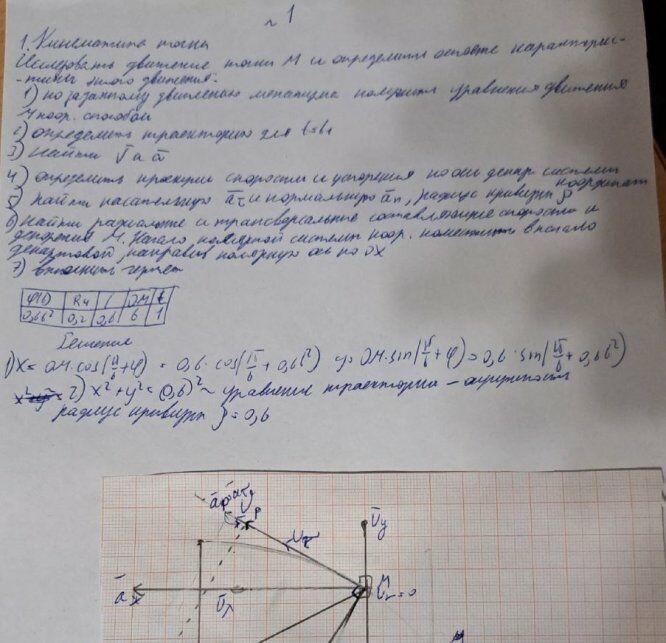 № 1
1. Кинематика точки
Исследовать движение точки М и определить основные характерис-
-тики этого движения.
1) по заданному движению механизма получить уравнения движения
коор. способом
2) определить траекторию для t=t₁
3) найти v̄ и ā
4) определить проекции скорости и ускорения на оси декар. системы координат
5) найти касательную āτ и нормальную ān, радиус кривизны ρ
6) найти радиальные и трансверсальные составляющие скорости и
М. Начало полярной системы коор. поместить в начало
декартовой, направив полярную ось по OX
7) выполнить чертёж
φ(t) R м l OM t
0,6t² 0,2 0,6 6 1
Решение
1) x = OM·cos(π/6+φ) = 0,6·cos(π/6+0,6t²) y = OM·sin(π/6+φ) = 0,6·sin(π/6+0,6t²)
2) x²+y² = (0,6)² ~ уравнение траектории – окружность
радиус кривизны ρ = 0,6
v̄y
M
v̄r=0
ā x
v̄x
M